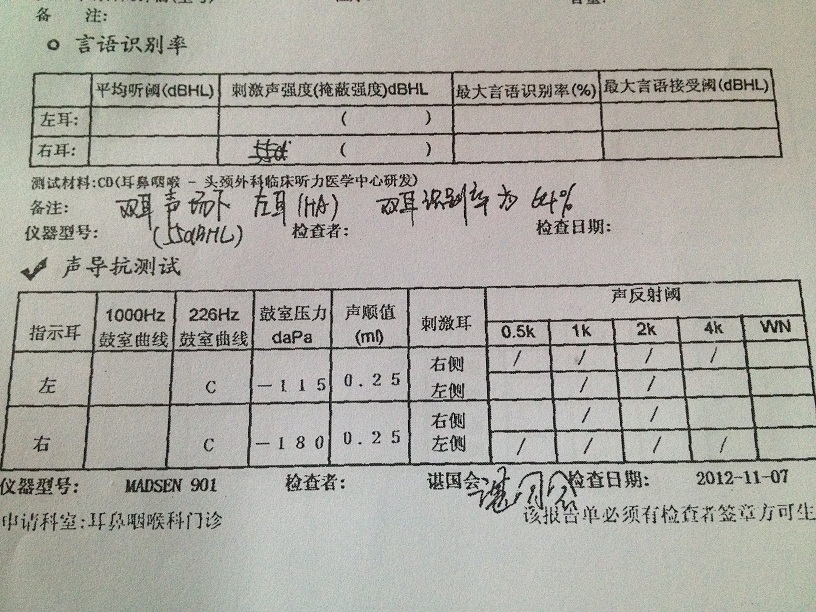 备 注:
言语识别率
平均听阈(dBHL) 刺激声强度(掩蔽强度)dBHL 最大言语识别率(%) 最大言语接受阈(dBHL)
左耳: ( )
右耳: 55dB ( )
测试材料:CD(耳鼻咽喉 - 头颈外科临床听力医学中心研发)
备注: 双耳声场下 左耳(HA) 双耳识别率为 64%
(55dBHL)
仪器型号: 检查者: 检查日期:
✓ 声导抗测试
指示耳 1000Hz 鼓室曲线 226Hz 鼓室曲线 鼓室压力 daPa 声顺值 (ml) 刺激耳 声反射阈
0.5k 1k 2k 4k WN
左 C -115 0.25 右侧 / / / /
左侧 / /
右 C -180 0.25 右侧 / /
左侧 / / / /
仪器型号: MADSEN 901 检查者: 谌国会 谌国会 检查日期: 2012-11-07
申请科室:耳鼻咽喉科门诊 该报告单必须有检查者签章方可生